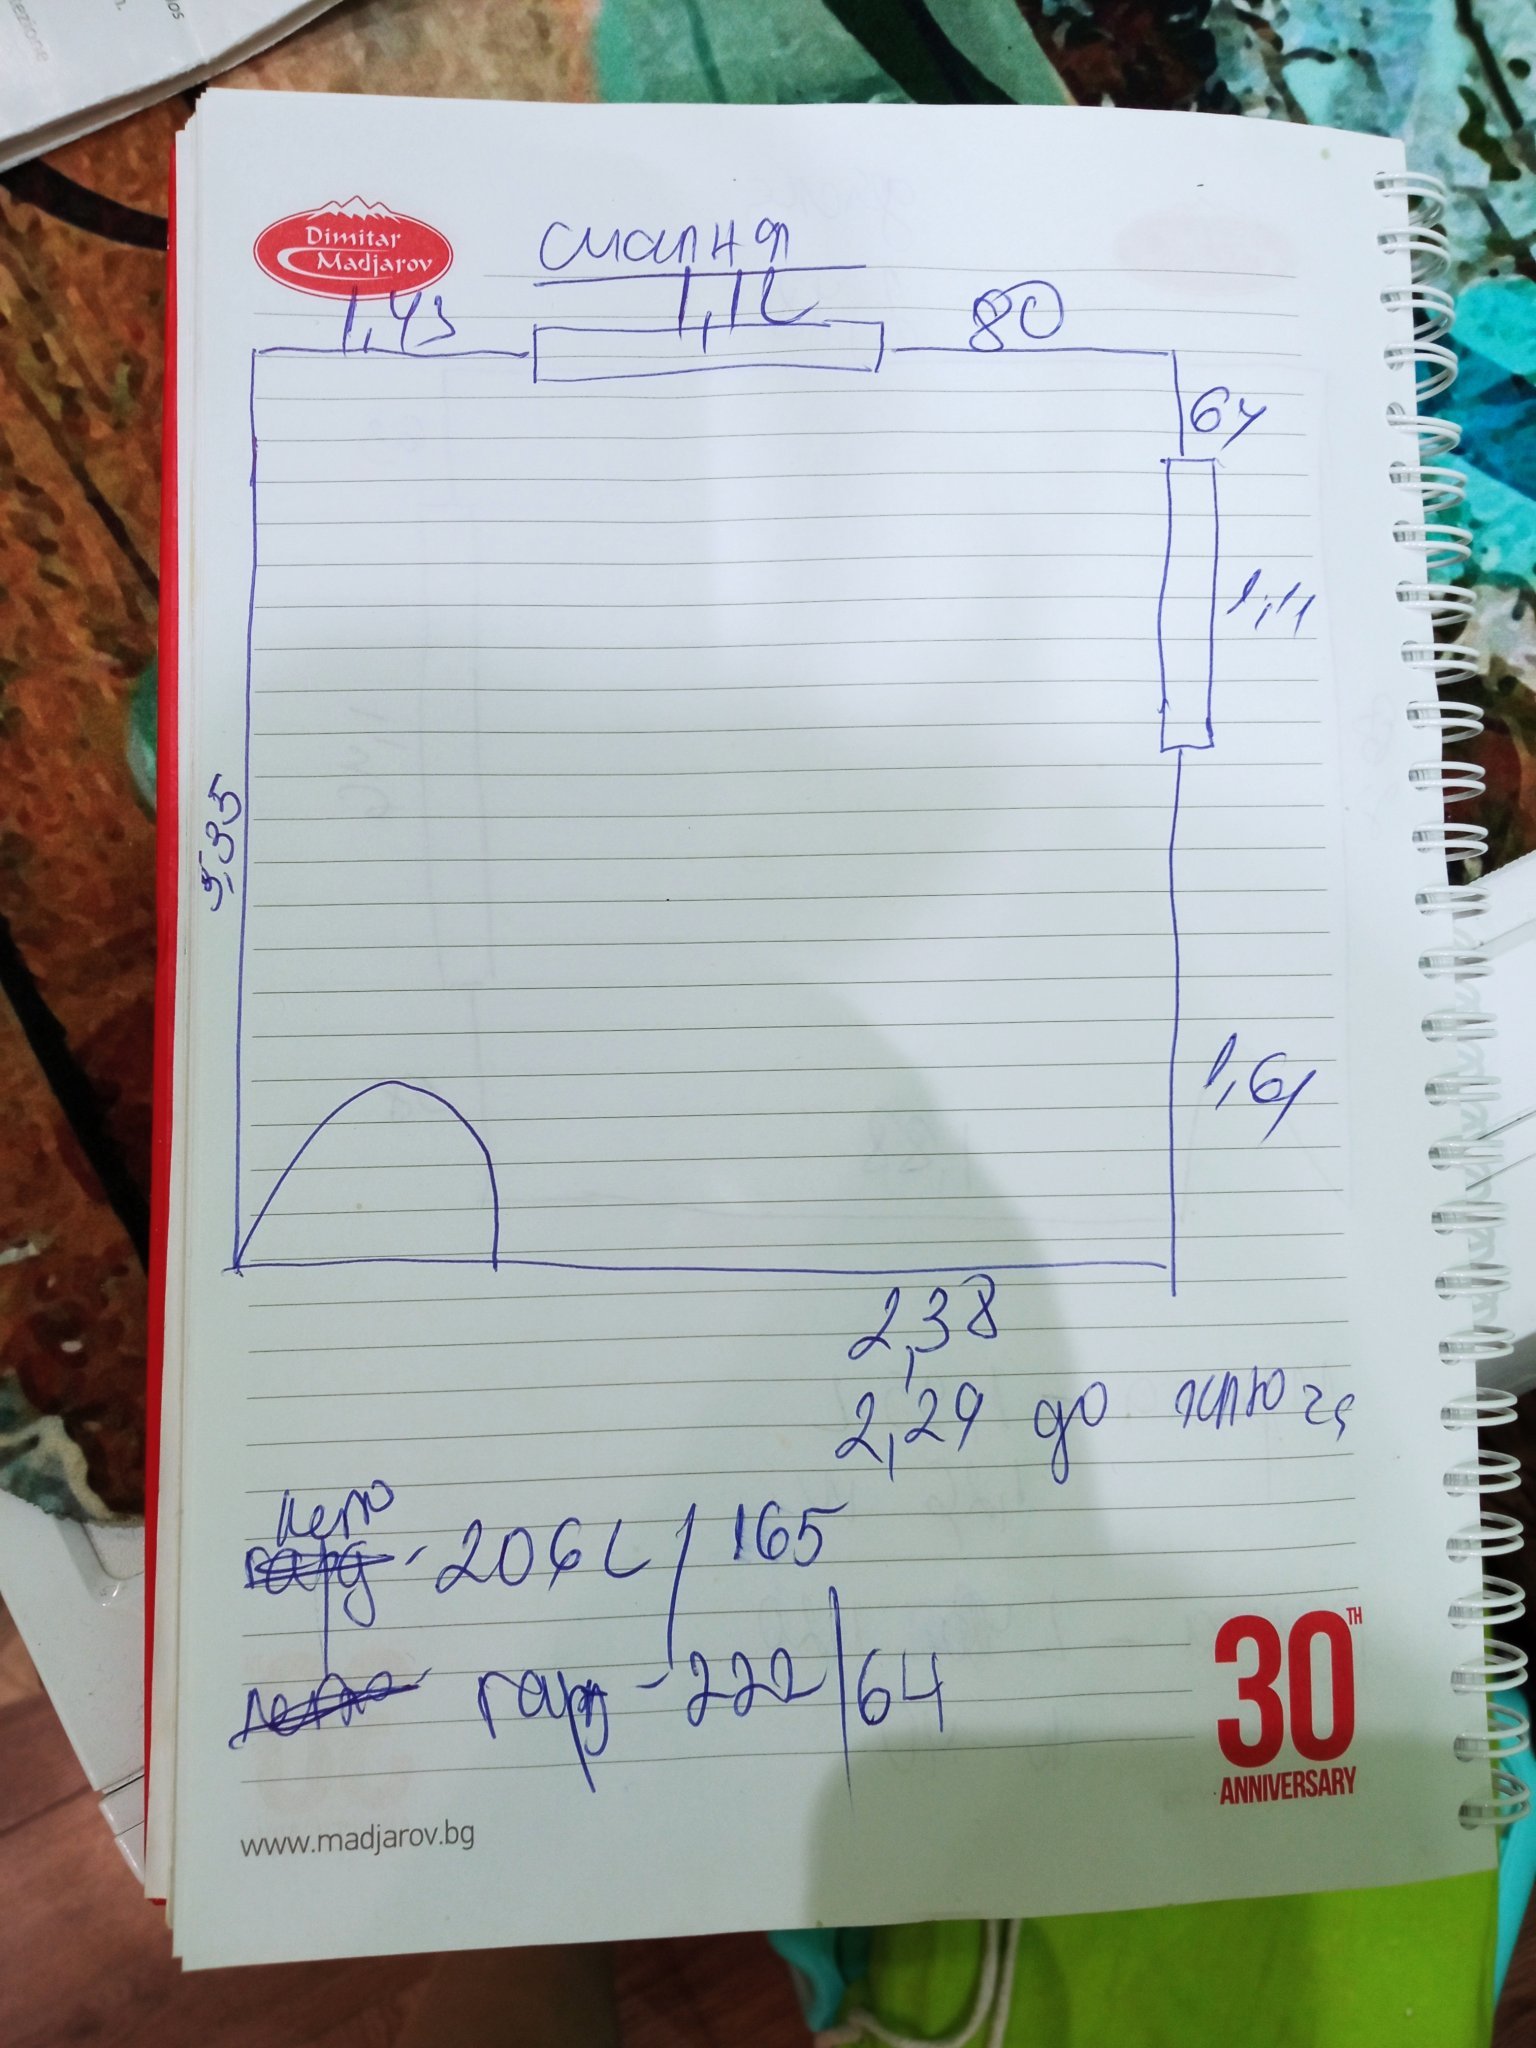 Dimitar
Madjarov
спалня
1,43
1,12
80
64
1,11
5,35
1,64
2,38
2,29 до ключа
легло
гард - 206 / 165
гард - 222 / 64
30TH
ANNIVERSARY
www.madjarov.bg